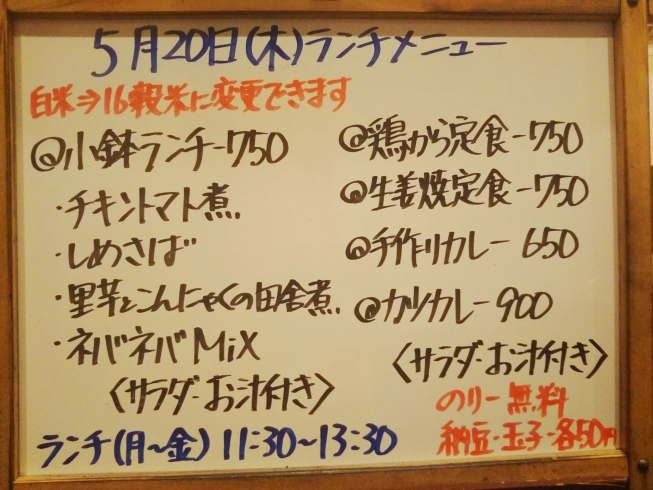 5月20日(木)ランチメニュー
白米⇒16穀米に変更できます
@小鉢ランチ-750
・チキントマト煮
・しめさば
・里芋とこんにゃくの田舎煮
・ネバネバMix
〈サラダ・お汁付き〉
@鶏から定食-750
@生姜焼定食-750
@手作りカレー 650
@カツカレー900
〈サラダ・お汁付き〉
のりー無料
納豆・玉子-各50円
ランチ(月〜金) 11:30〜13:30